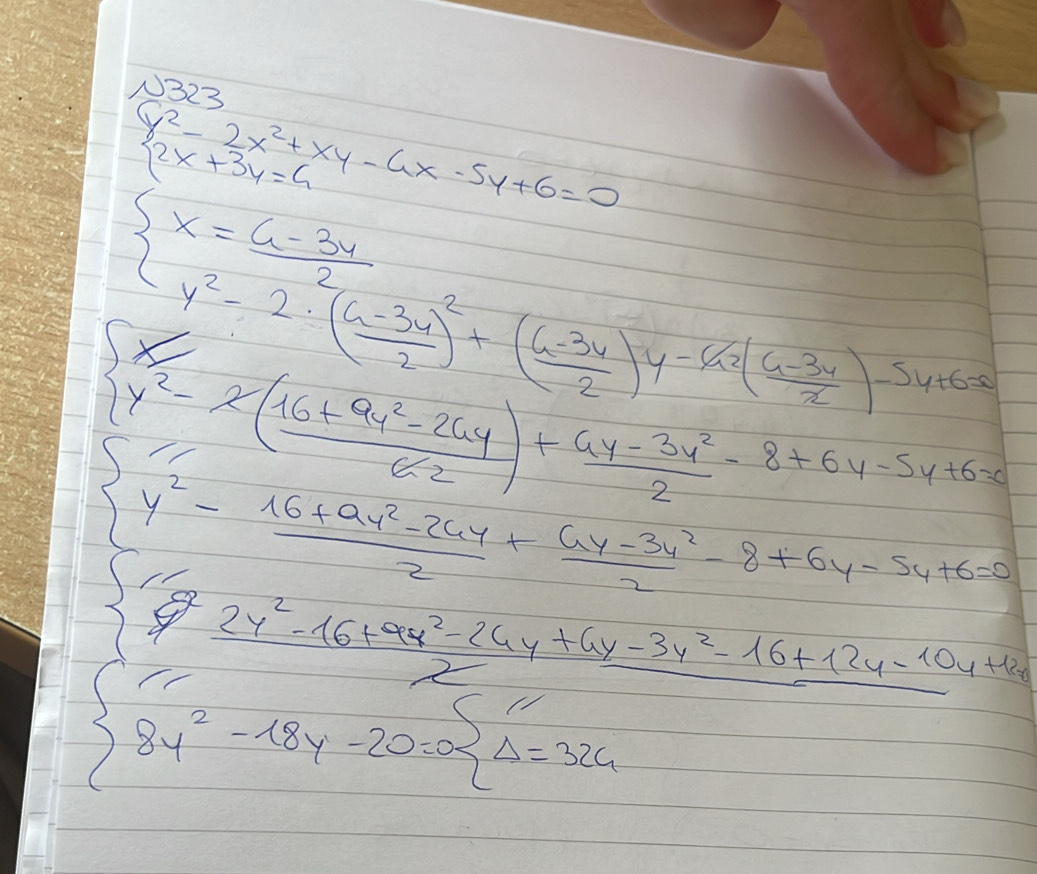 N323
y² - 2x² + xy - 4x - 5y + 6 = 0
2x + 3y = 4
x = (4 - 3y)/2
y² - 2 · ((4 - 3y)/2)² + ((4 - 3y)/2)y - 42((4 - 3y)/2) - 5y + 6 = 0
x
y² - 2((16 + 9y² - 24y)/42) + (4y - 3y²)/2 - 8 + 6y - 5y + 6 = 0
//
y² - (16 + 9y² - 24y)/2 + (4y - 3y²)/2 - 8 + 6y - 5y + 6 = 0
//
(2y² - 16 + 9y² - 24y + 4y - 3y² - 16 + 12y - 10y + 12)/2 = 0
// //
8y² - 18y - 20 = 0 Δ = 324